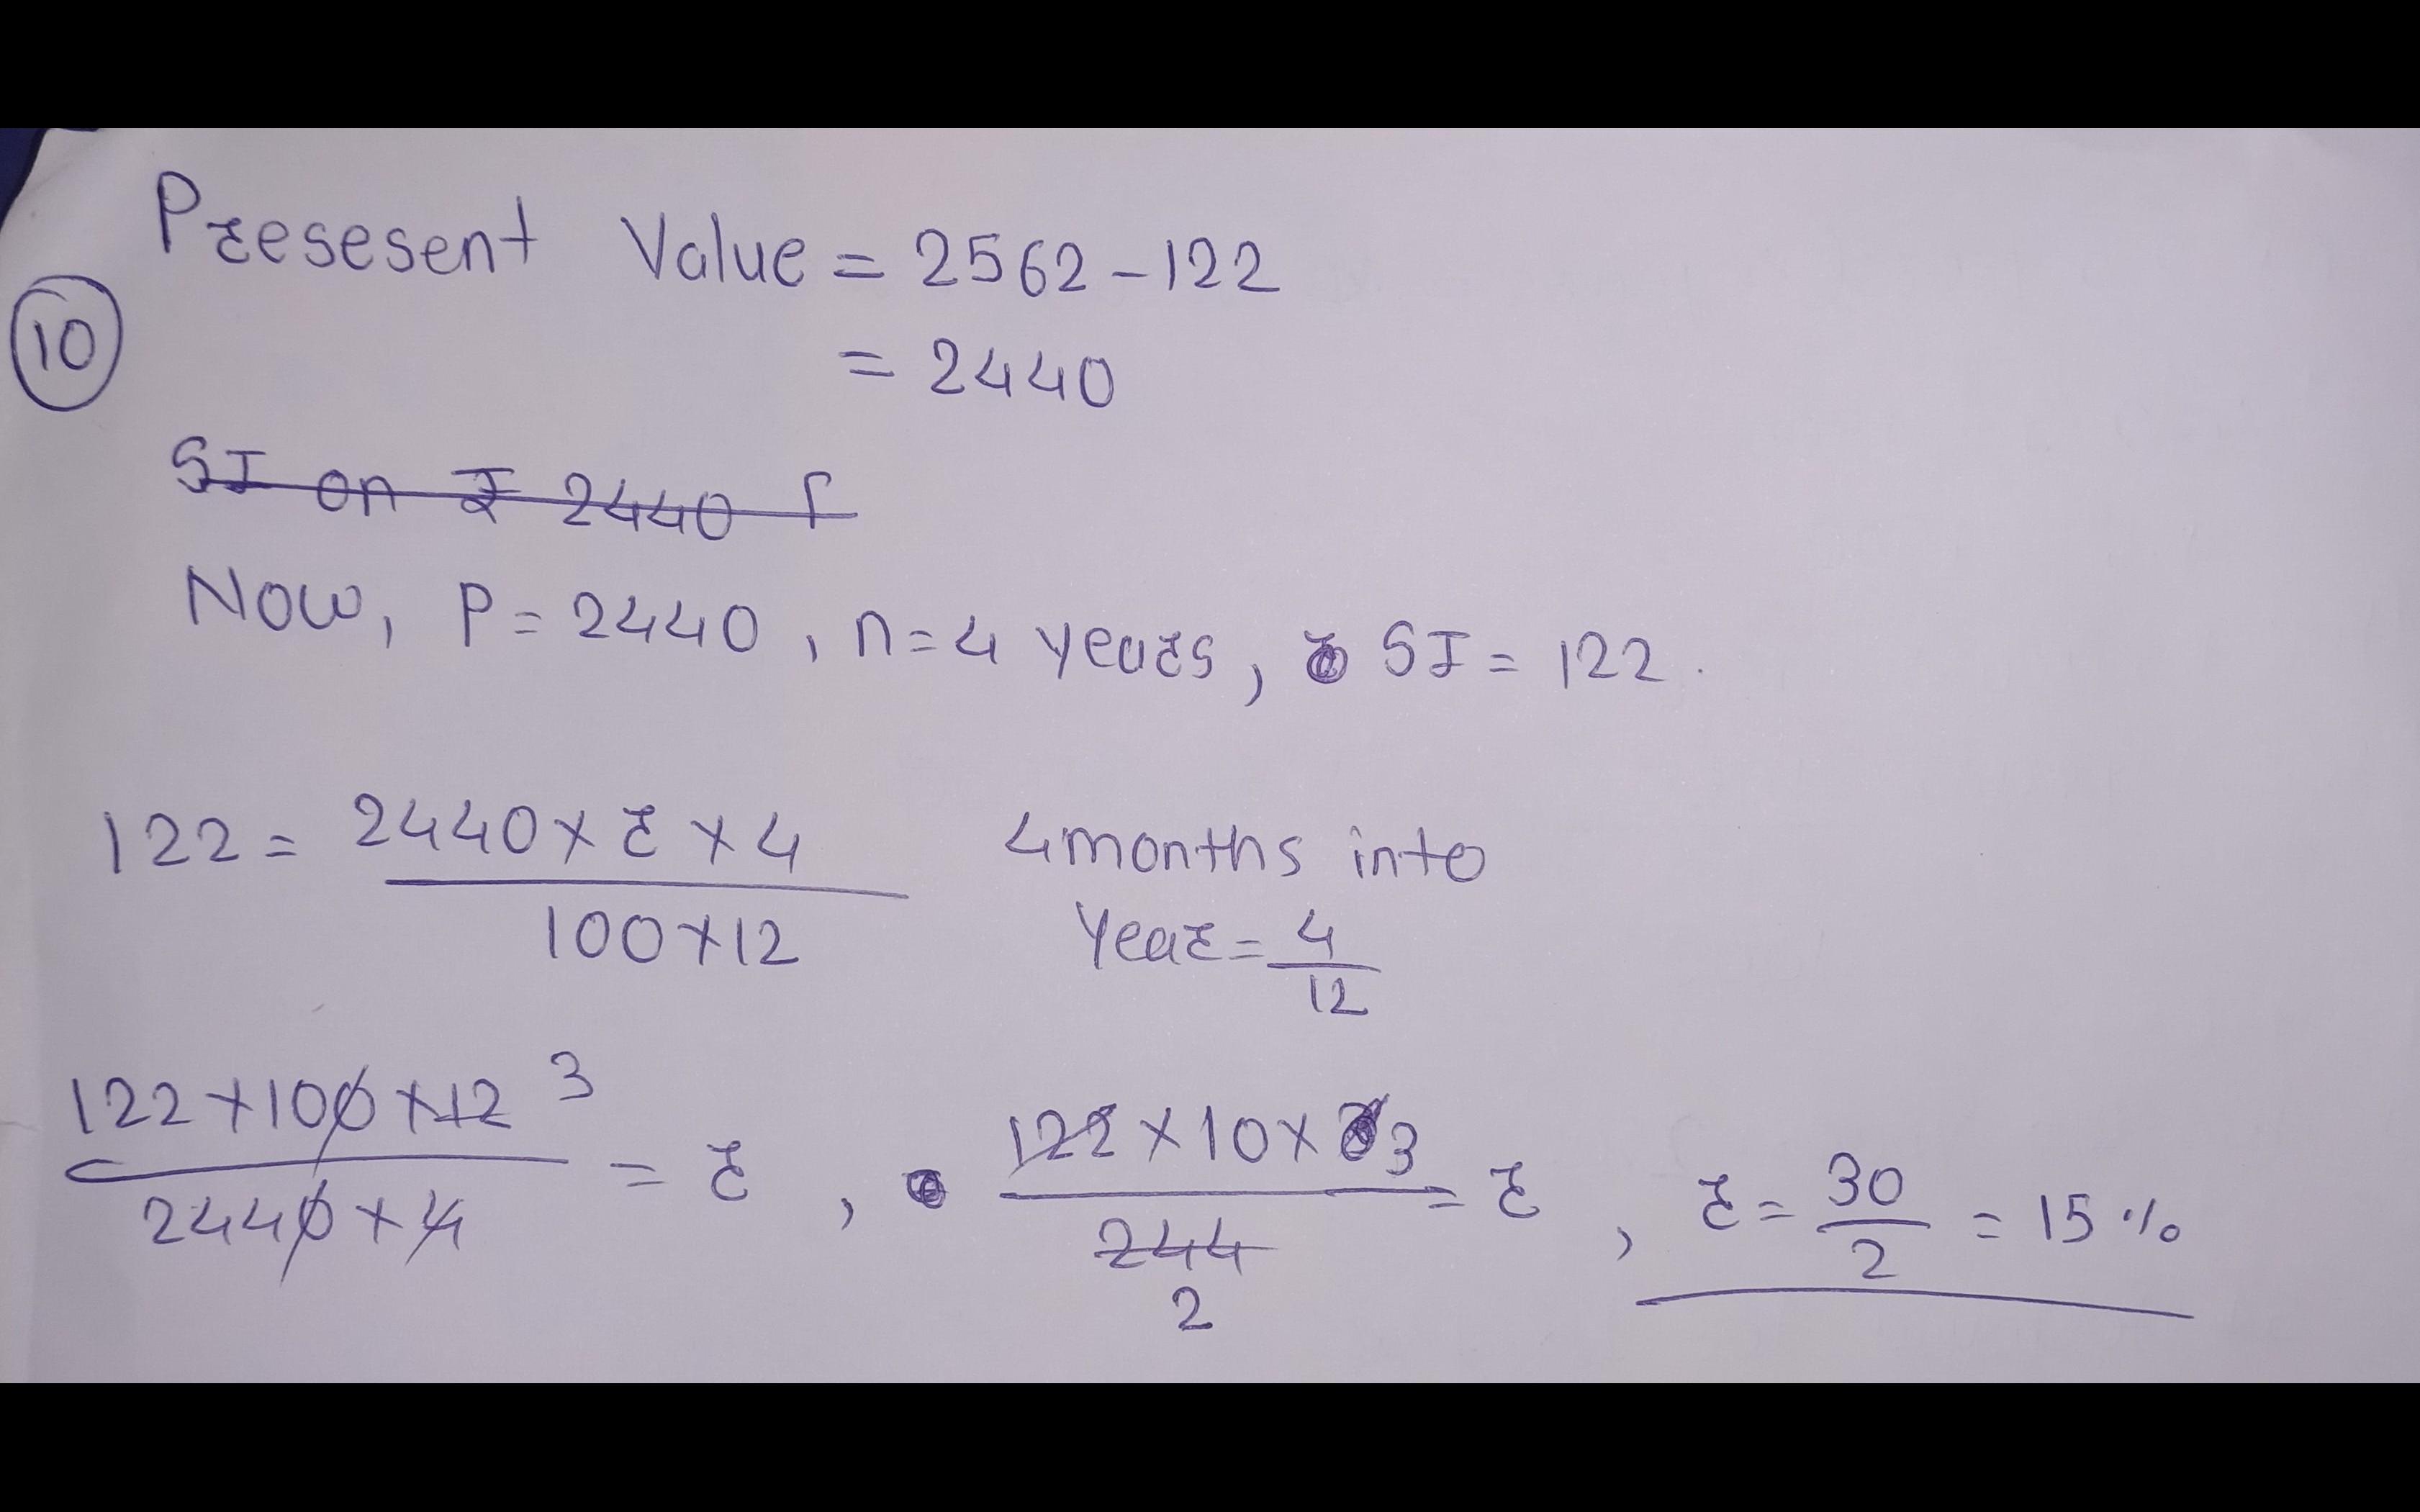 Presesent Value = 2562 - 122
10
= 2440
SI on ₹ 2440 f
Now, P = 2440, n = 4 years, SI = 122.
122 = 2440 × r × 4
100 × 12
4 months into
Year = 4
12
122 × 100 × 12 3
2440 × 4
= r ,
122 × 10 × 3
244
2
= r ,
r = 30
2
= 15 %